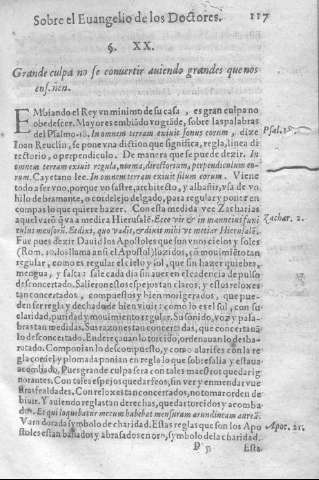 Sobre el Euangelio de los Doctores. 117
§. XX.
Grande culpa no se conuertir auiendo grandes que nos
enseñen.
EMbiando el Rey vn minimo de su casa, es gran culpa no
obedescer. Mayores embiado
del Psalmo.18. In omnem terram exiuit sonus eorum, dize
Psal.18.
Ioan Reuclin, se pone vna diction que significa, regla, linea di
rectorio, o perpendiculo. De manera que se puede dezir. In
omnem terram exiuit regula, norma, directorium, perpendiculum eo-
rum. Cayetano lee. In omnem terram exiuit filum eorum. Viene
todo a ser vno, porque vn sastre, architecto, y albañir, vsa de vn
hilo de bramante, o cordel delgado, para regular y poner en
compas lo que quiere hazer. Con esta medida vee Zacharias
aquel varō q̄ yua a medira Hierusalē. Ecce vir & in manu eius funi
Zachar. 2.
culus mensorū. Et dixi, quo vadis, & dixit mihi vt metiar Hierusalē.
Fue pues dezir Dauid los Apostoles que son vnos cielos y soles
(Rom. 10. los llama ansi el Apostol) luzidos, cō mouimiēto tan
regular, como es regular el cielo y sol, que sin hazer quiebra,
mengua, y falta sale cada dia sin auer en el cadencia de pulso
desconcertado. Salieron estos espejos tan claros, y estos reloxes
tan concertados, compuestos y bien mouigerados, que pue-
den ser regla y dechado de bien viuir: como lo es el sol, con su
claridad, puridad y mouimiento regular. Su sonido, voz y pala-
bras tan medidas. Sus razones tan concertadas, que concertauā
lo desconcertado. Endereçauan lo torcido, ordenauan lo desba-
ratado. Componian lo descompuesto, y como alarifes con la re-
gla cordel y plomada ponian en regla lo que sobresalia y estaua
acombado. Pues grande culpa sera con tales maestros quedar ig
norantes. Con tales espejos quedar feos, sin ver y enmendar vue
stras fealdades. Con reloxes tan concertados, no tomar orden de
biuir. Y auiendo reglas tan derechas, quedar torcidos y acomba
dos. Et qui loquebatur mecum habebat mensuram arundineam auream.
Vara dorada symbolo de charidad. Estas reglas que son los Apo
Apoc. 21.
stoles estan bañados y abrasados en oro, symbolo de la charidad.
Esta.